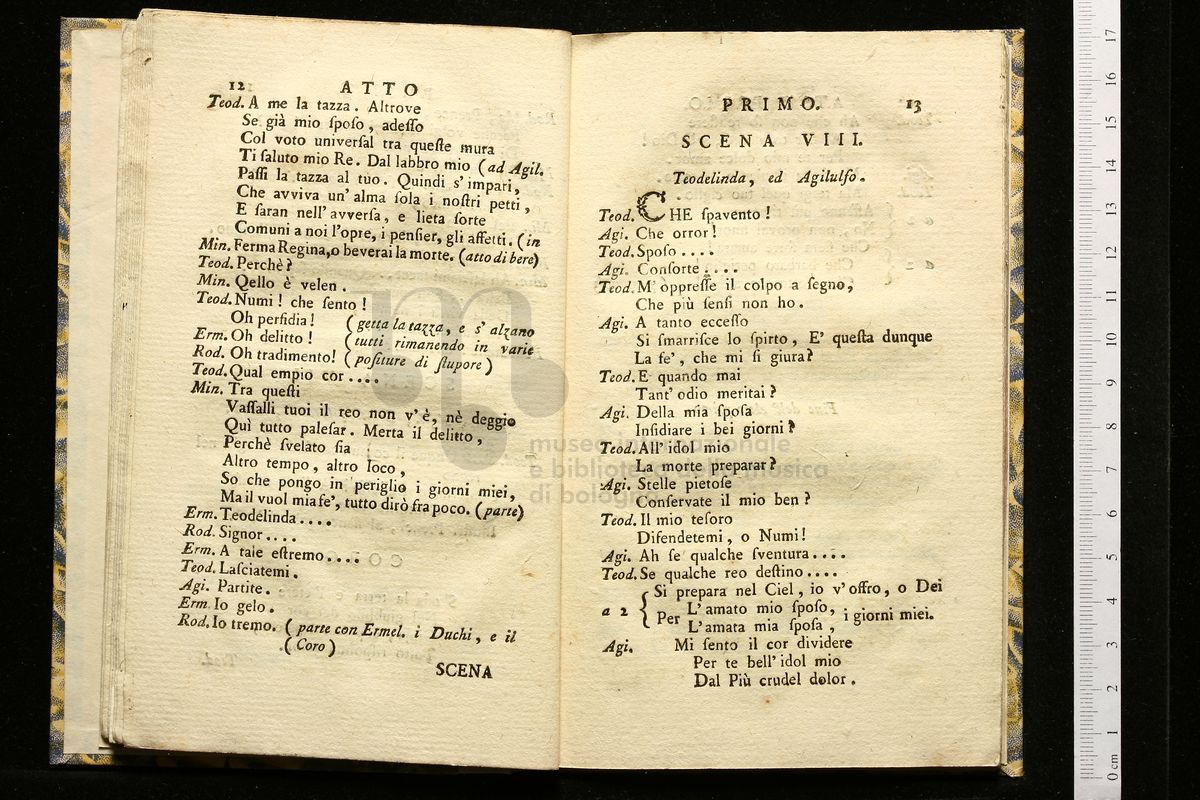 12 ATTO
Teod. A me la tazza. Altrove
Se già mio ſpoſo, adeſſo
Col voto univerſal tra queſte mura
Ti ſaluto mio Re. Dal labbro mio (ad Agil.
Paſſi la tazza al tuo. Quindi s' impari,
Che avviva un' alma ſola i noſtri petti,
E ſaran nell' avverſa, e lieta ſorte
Comuni a noi l'opre, i penſier, gli affetti. (in
Min. Ferma Regina, o beverai la morte. (atto di bere)
Teod. Perchè?
Min. Qello è velen.
Teod. Numi! che ſento!
Oh perfidia! (getta la tazza, e s' alzano
Erm. Oh delitto! (tutti rimanendo in varie
Rod. Oh tradimento! (poſiture di ſtupore)
Teod. Qual empio cor ....
Min. Tra queſti
Vaſſalli tuoi il reo non v' è, nè deggio
Quì tutto paleſar. Merta il delitto,
Perchè ſvelato ſia
Altro tempo, altro loco,
So che pongo in periglio i giorni miei,
Ma il vuol mia fe', tutto dirò fra poco. (parte)
Erm. Teodelinda ....
Rod. Signor ....
Erm. A tale eſtremo ....
Teod. Laſciatemi.
Agi. Partite.
Erm. Io gelo.
Rod. Io tremo. (parte con Ermel. i Duchi, e il
(Coro)
SCENA
PRIMO. 13
SCENA VIII.
Teodelinda, ed Agilulfo.
Teod. CHE ſpavento!
Agi. Che orror!
Teod. Spoſo ....
Agi. Conſorte ....
Teod. M' oppreſſe il colpo a ſegno,
Che più ſenſi non ho.
Agi. A tanto ecceſſo
Si ſmarriſce lo ſpirto, E' queſta dunque
La fe', che mi ſi giura?
Teod. E quando mai
Tant' odio meritai?
Agi. Della mia ſpoſa
Inſidiare i bei giorni?
Teod. All' idol mio
La morte preparar?
Agi. Stelle pietoſe
Conſervate il mio ben?
Teod. Il mio teſoro
Difendetemi, o Numi!
Agi. Ah ſe qualche ſventura ....
Teod. Se qualche reo deſtino ....
Si prepara nel Ciel, io v' offro, o Dei
a 2 { Per L' amato mio ſpoſo, i giorni miei.
L' amata mia ſpoſa,
Agi. Mi ſento il cor dividere
Per te bell' idol mio
Dal Più crudel dolor.
museo internazionale
e biblioteca della musica
di bologna
0 cm 1 2 3 4 5 6 7 8 9 10 11 12 13 14 15 16 17